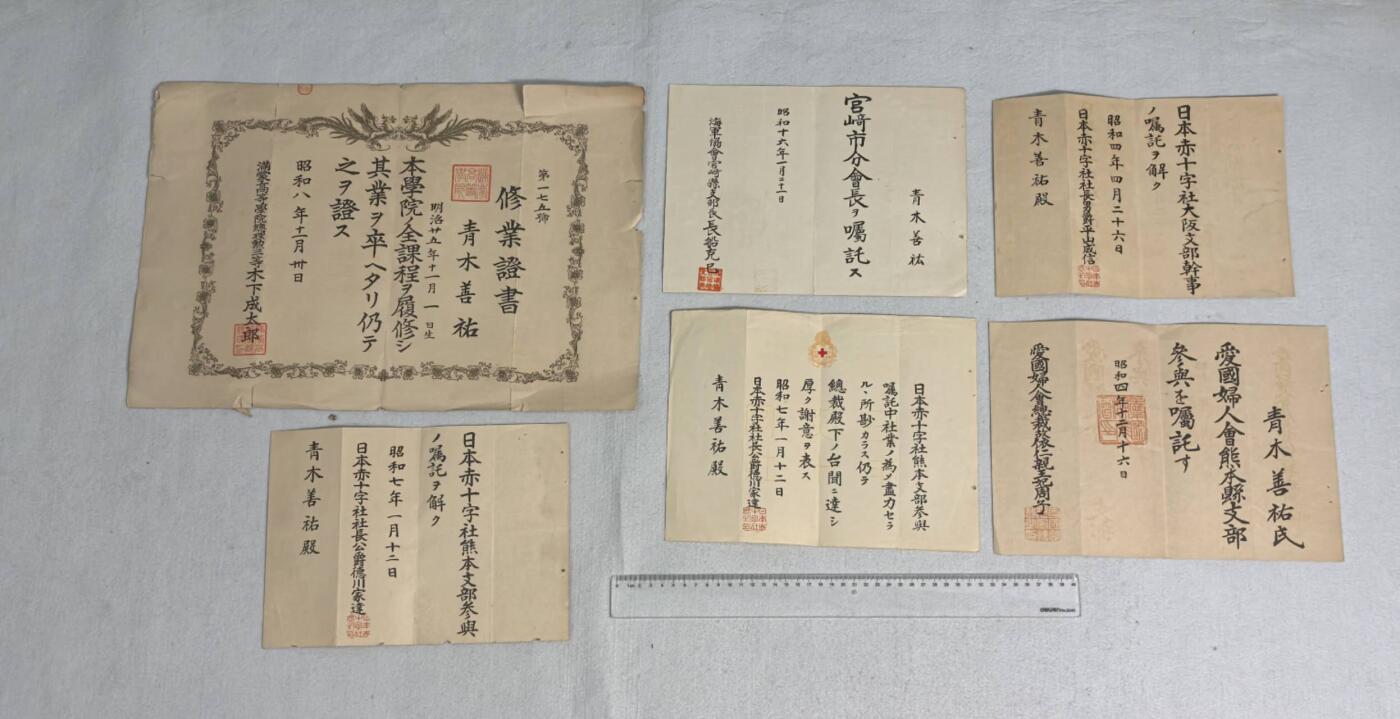 第一七五號
修業證書
青木善祐
明治廿五年十一月一日生
本學院ノ全課程ヲ履修シ
其業ヲ卒ヘタリ仍テ
之ヲ證ス
昭和八年十一月卅日
滿蒙高等學院總理勲三等木下成太郎
青木善祐
宮﨑市分會長ヲ嘱託ス
昭和十六年一月二十一日
海軍協會宮﨑縣支部長長船克巳
日本赤十字社大阪支部幹事
ノ嘱託ヲ解ク
昭和四年四月二十六日
日本赤十字社社長男爵平山成信
青木善祐殿
日本赤十字社熊本支部參與
嘱託中社業ノ為メ盡力セラ
ルヽ所尠カラス仍テ
總裁殿下ノ台聞ニ達シ
厚ク謝意ヲ表ス
昭和七年一月十二日
日本赤十字社社長公爵德川家達
青木善祐殿
青木善祐氏
愛國婦人會熊本縣支部
參與を嘱託す
昭和四年十二月十六日
愛國婦人會總裁依仁親王妃周子
日本赤十字社熊本支部參與
ノ嘱託ヲ解ク
昭和七年一月十二日
日本赤十字社社長公爵德川家達
青木善祐殿